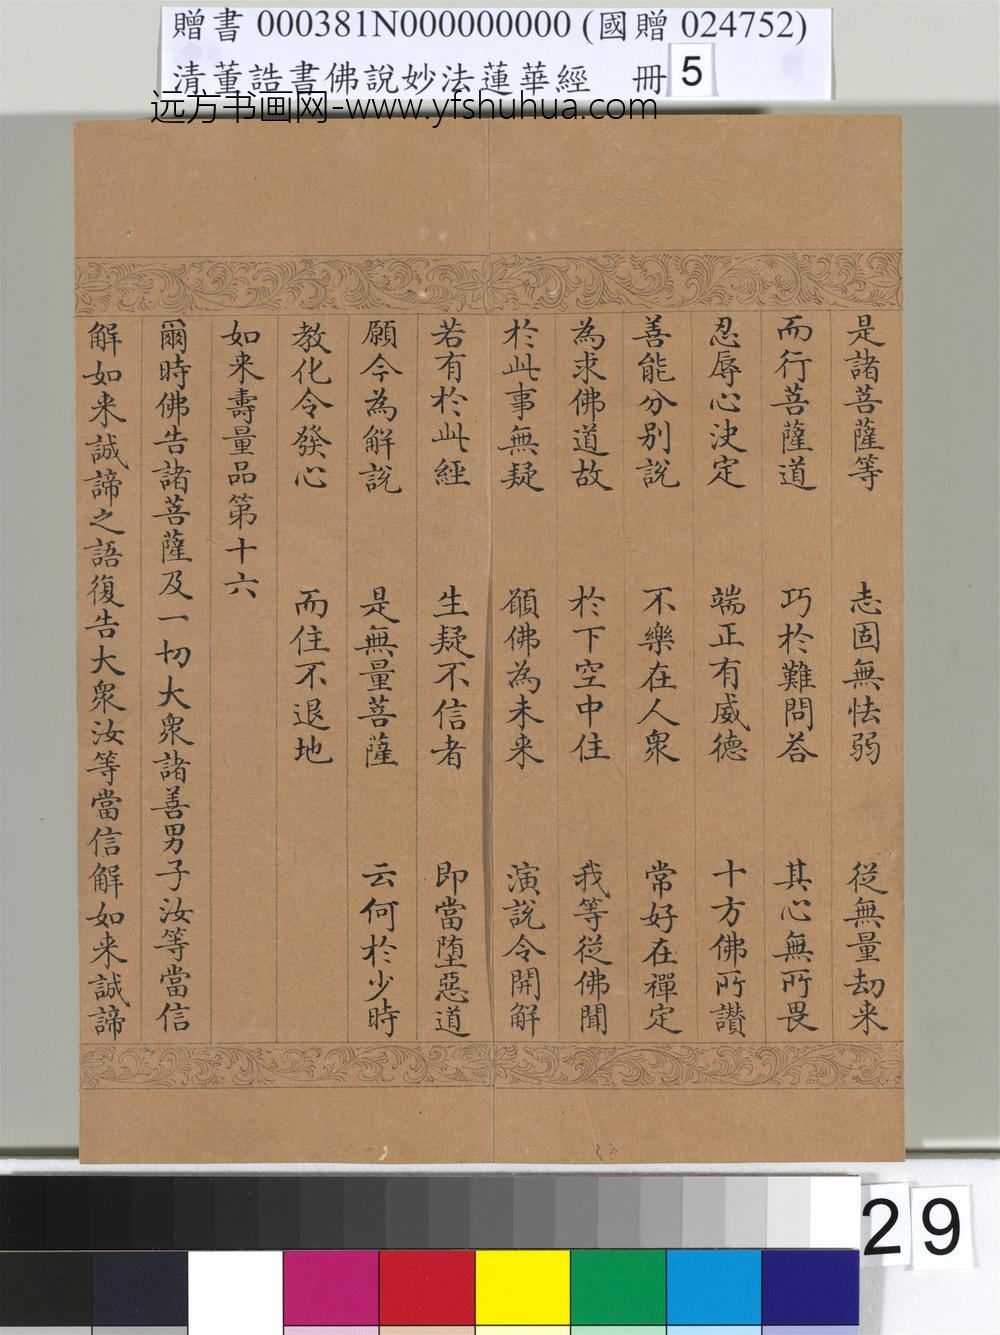 贈書 000381N000000000 (國贈 024752)
清董誥書佛說妙法蓮華經 冊 5
远方书画网-www.yfshuhua.com
是諸菩薩等 志固無怯弱 從無量劫来
而行菩薩道 巧於難問荅 其心無所畏
忍辱心決定 端正有威德 十方佛所讃
善能分別說 不樂在人衆 常好在禪定
為求佛道故 於下空中住 我等從佛聞
於此事無疑 願佛為未来 演說令開解
若有於此經 生疑不信者 即當堕惡道
願今為解說 是無量菩薩 云何於少時
教化令發心 而住不退地
如来壽量品第十六
爾時佛告諸菩薩及一切大衆諸善男子汝等當信
解如来誠諦之語復告大衆汝等當信解如来誠諦
29